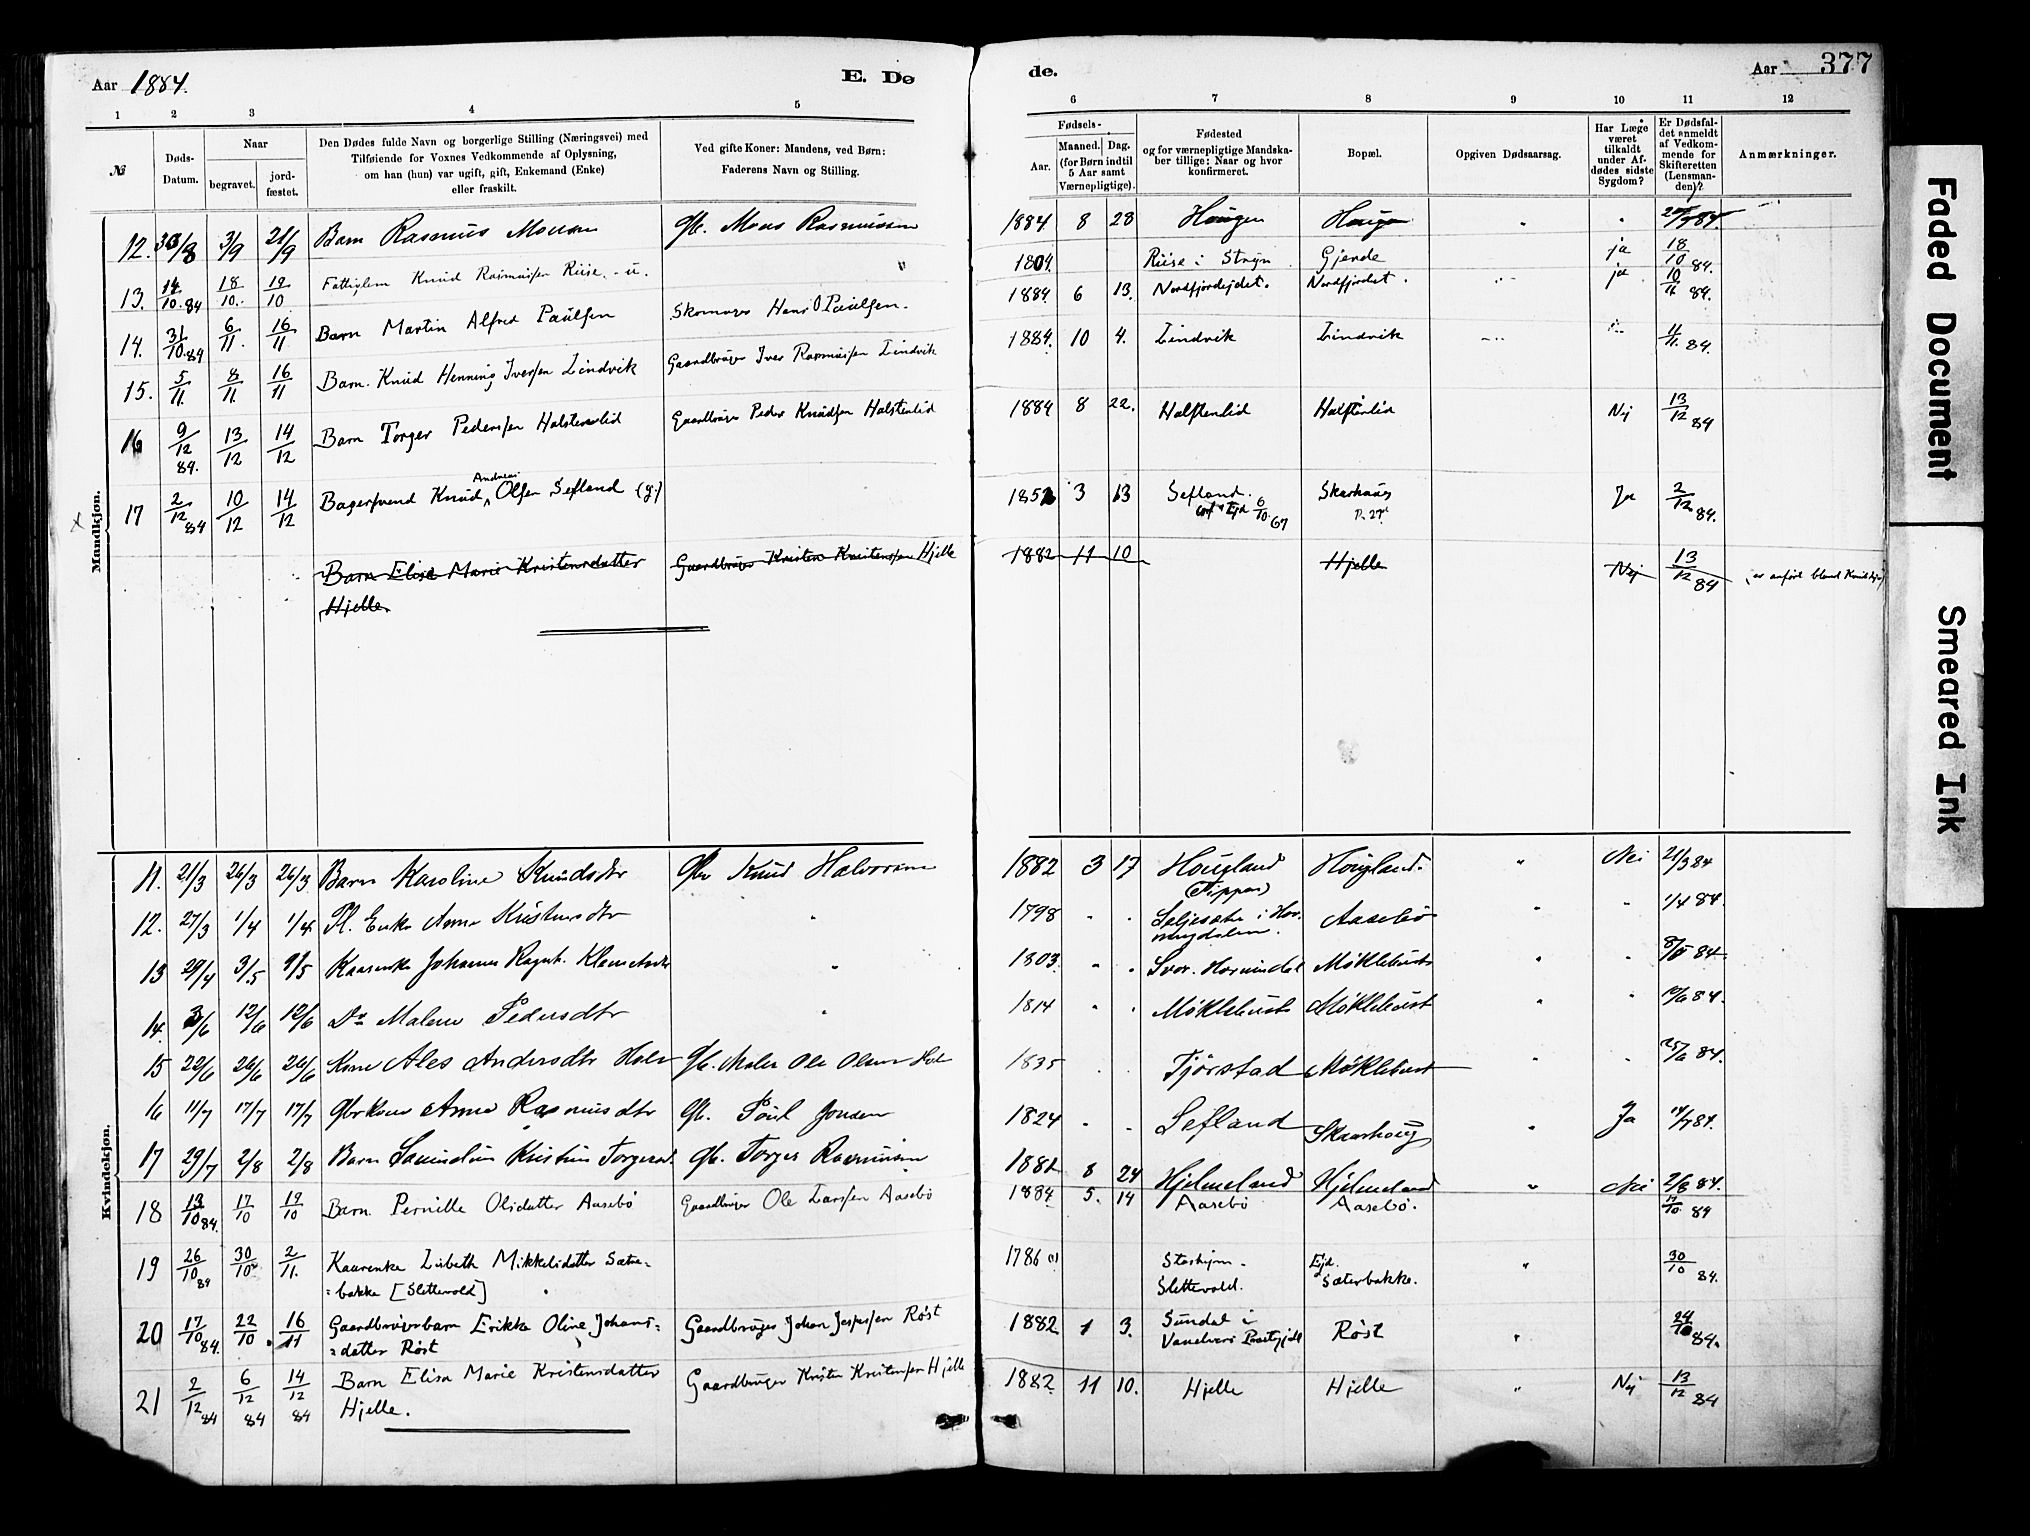 Aar 1884.
E. Dø
de.
Aar 377
1 2 3 4 5 6 7 8 9 10 11 12
№
Døds-Datum.
Naar
begravet.
jord-fæstet.
Den Dødes fulde Navn og borgerlige Stilling (Næringsvei) med
Tilføiende for Voxnes Vedkommende af Oplysning,
om han (hun) var ugift, gift, Enkemand (Enke)
eller fraskilt.
Ved gifte Koner: Mandens, ved Børn:
Faderens Navn og Stilling.
Fødsels-
Aar.
Maaned. Dag.
(for Børn indtil
5 Aar samt
Værnepligtige).
Fødested
og for værnepligtige Mandska-
ber tillige: Naar og hvor
konfirmeret.
Bopæl.
Opgiven Dødsaarsag.
Har Læge
været
tilkaldt
under Af-
dødes sidste
Sygdom?
Er Dødsfal-
det anmeldt
af Vedkom-
mende for
Skifteretten
(Lensman-
den)?
Anmærkninger.
Mandkjøn.
12. 3/9 21/9 Barn Rasmus Monsen Gb. Mons Rasmussen 1884. 8 28 Hougen Hougen
13. 14/10 84 18/10 19/10 Fattiglem Knud Rasmussen Riise. - u. " 1804. Riise i Stryn Gjerde ja 18/10 84.
14. 31/10 84 6/11 16/11 Barn Martin Alfred Paulsen Skomager Hans O Paulsen. 1884 6 13. Nordfjordejdet. Nordfjordet. ja 10/11 84.
15. 5/11 8/11 16/11 Barn. Knud Henning Iversen Lindvik Gaardbruger Iver Rasmussen Lindvik 1884. 10 4. Lindvik Lindvik 11/11 84.
16 9/12 84. 13/12 14/12 Barn Torger Pedersen Halstenlid Gaardbruger Peder Knudsen Halstenlid 1884 8 22. Halstenlid Halstenlid Nej 13/12 84
x 17 2/12 84 10/12 14/12 Bagersvend Knud Andreas Olsen Sefland (g.) 3 13 Sefland. 6/10 67 Skarhaug Ja 2/12 84.
Barn Elisa Marie Kristensdatter Gaardbruger Kristen Kristensen Hjelle 1882 11 10 Hjelle Nej 13/12 84 (er anført bland Kvindkjøn)
Hjelle.
Kvindekjøn.
11. 21/3 26/3 26/3 Barn Karoline Knudsdtr Gbr Knud Halvorsen 1882 3 17 Hougland Hougland. " Nei 21/3 84
12. 27/3 1/4 1/4 Fl. Enke Anna Kristensdtr " 1798 Aasebø " 1/4 84.
13 29/4 3/5 9/5 Kaarenke Johanne Ragnh. " 1803. Hornindal Møklebust "
14. 3/6 12/6 12/6 Do Malene Pedersdtr " 1814 Møklebust Møklebust " 12/6 84.
15 22/6 26/6 26/6 Kone Ales Andersdtr Gb. Maler Ole Olsen 1835 Tjørstad Møklebust " 25/6 84.
16 11/7 17/7 17/7 Gbrkone Anna Rasmusdtr Gb. Poul Jonsen 1824 Sefland Skaarhoug " Ja
17 29/7 2/8 2/8 Barn Kristine Torgersd. Gb. Torger Rasmussen 8 24 Hjelmeland Hjelmeland " Nei 2/8 84.
18 13/10 84. 17/10 19/10 Barn. Pernille Olsdatter Aasebø Gaardbruger Ole Larssen Aasebø 1884 5. 14 Aasebø Aasebø. 17/10 84
19 26/10 84 30/10 2/11. Kaarenke Lisbeth Mikkelsdatter Sætre- 1786 Ejd. " 30/10 84.
=bakke [Slettevold] Slettevold. Sæterbakke.
20 17/10 84. 22/10 16/11 Gaardbrugerbarn Erikke Oline Johans= Gaardbruger Johan Jespersen Røst 1882 1 3. Sundal i Røst " 84.
=datter Røst Vanelvens Præstegjeld
21 2/12 84 6/12 84 14/12 84 Barn Elisa Marie Kristensdatter Gaardbruger Kristen Kristensen Hjelle 1882 11 10. Hjelle Hjelle " Nej 13/12 84
Hjelle.
Faded Document
Smeared Ink